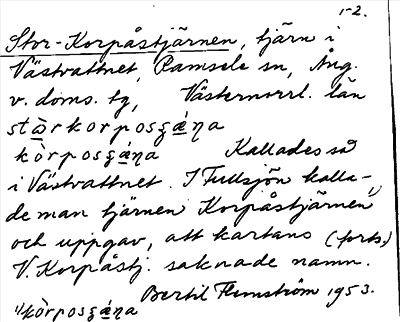 1-2.
Stor-Korpåstjärnen, tjärn i
Västvattnet, Ramsele sn, Ång.
v. doms. tg, Västernorrl. län
stɷ̀rkorposʒǽŋa
kòrposʒǽŋa Kallades så
i Västvattnet. I Tullsjön kalla-
de man tjärnen Korpåstjärnen¹⁾
och uppgav, att kartans (forts.)
V. Korpåstj. saknade namn.
Bertil Flemström 1953.
¹⁾kòrposʒǽŋa